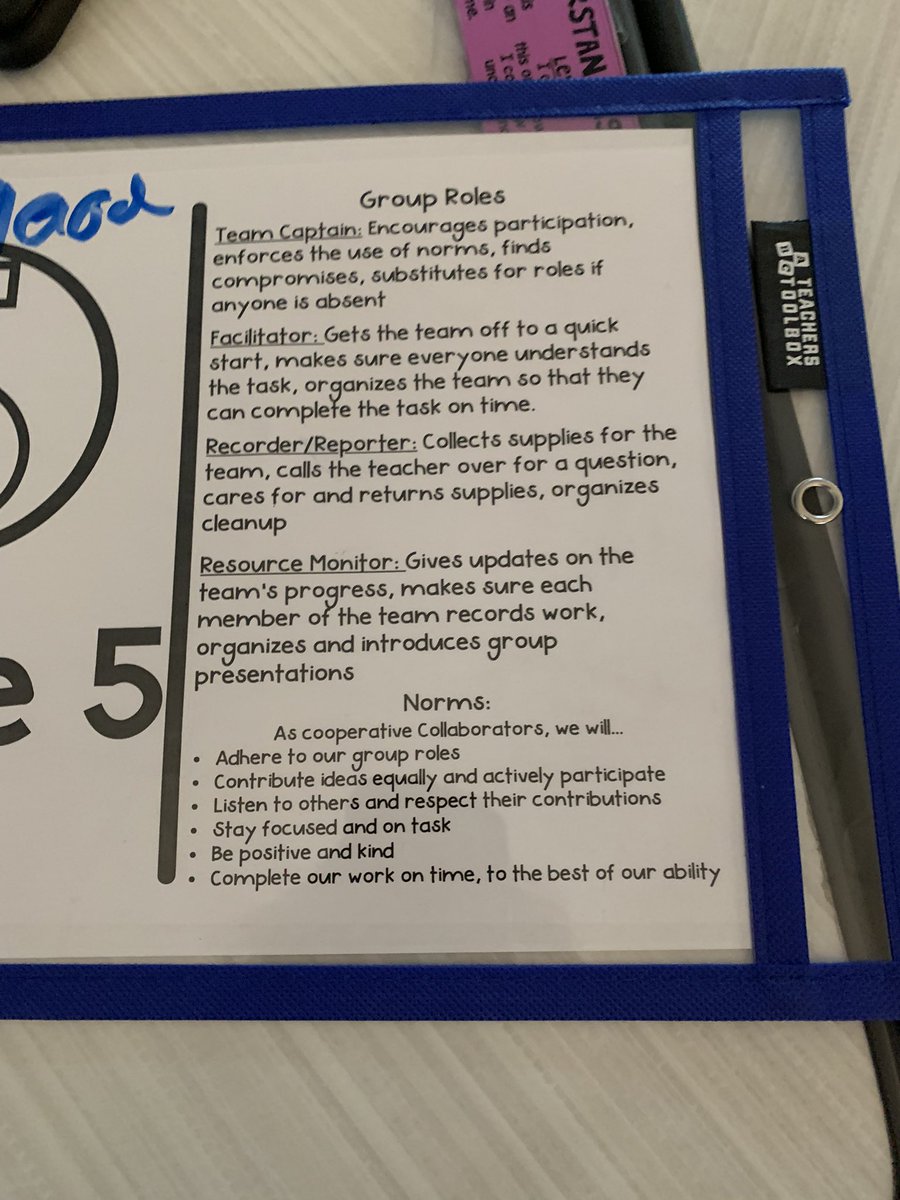 Group Roles
Team Captain: Encourages participation,
enforces the use of norms, finds
compromises, substitutes for roles if
anyone is absent
Facilitator: Gets the team off to a quick
start, makes sure everyone understands
the task, organizes the team so that they
can complete the task on time.
Recorder/Reporter: Collects supplies for the
team, calls the teacher over for a question,
cares for and returns supplies, organizes
cleanup
Resource Monitor: Gives updates on the
team's progress, makes sure each
member of the team records work,
organizes and introduces group
presentations
Norms:
As cooperative Collaborators, we will...
• Adhere to our group roles
• Contribute ideas equally and actively participate
• Listen to others and respect their contributions
• Stay focused and on task
• Be positive and kind
• Complete our work on time, to the best of our ability
e 5
A TEACHERS
TOOLBOX